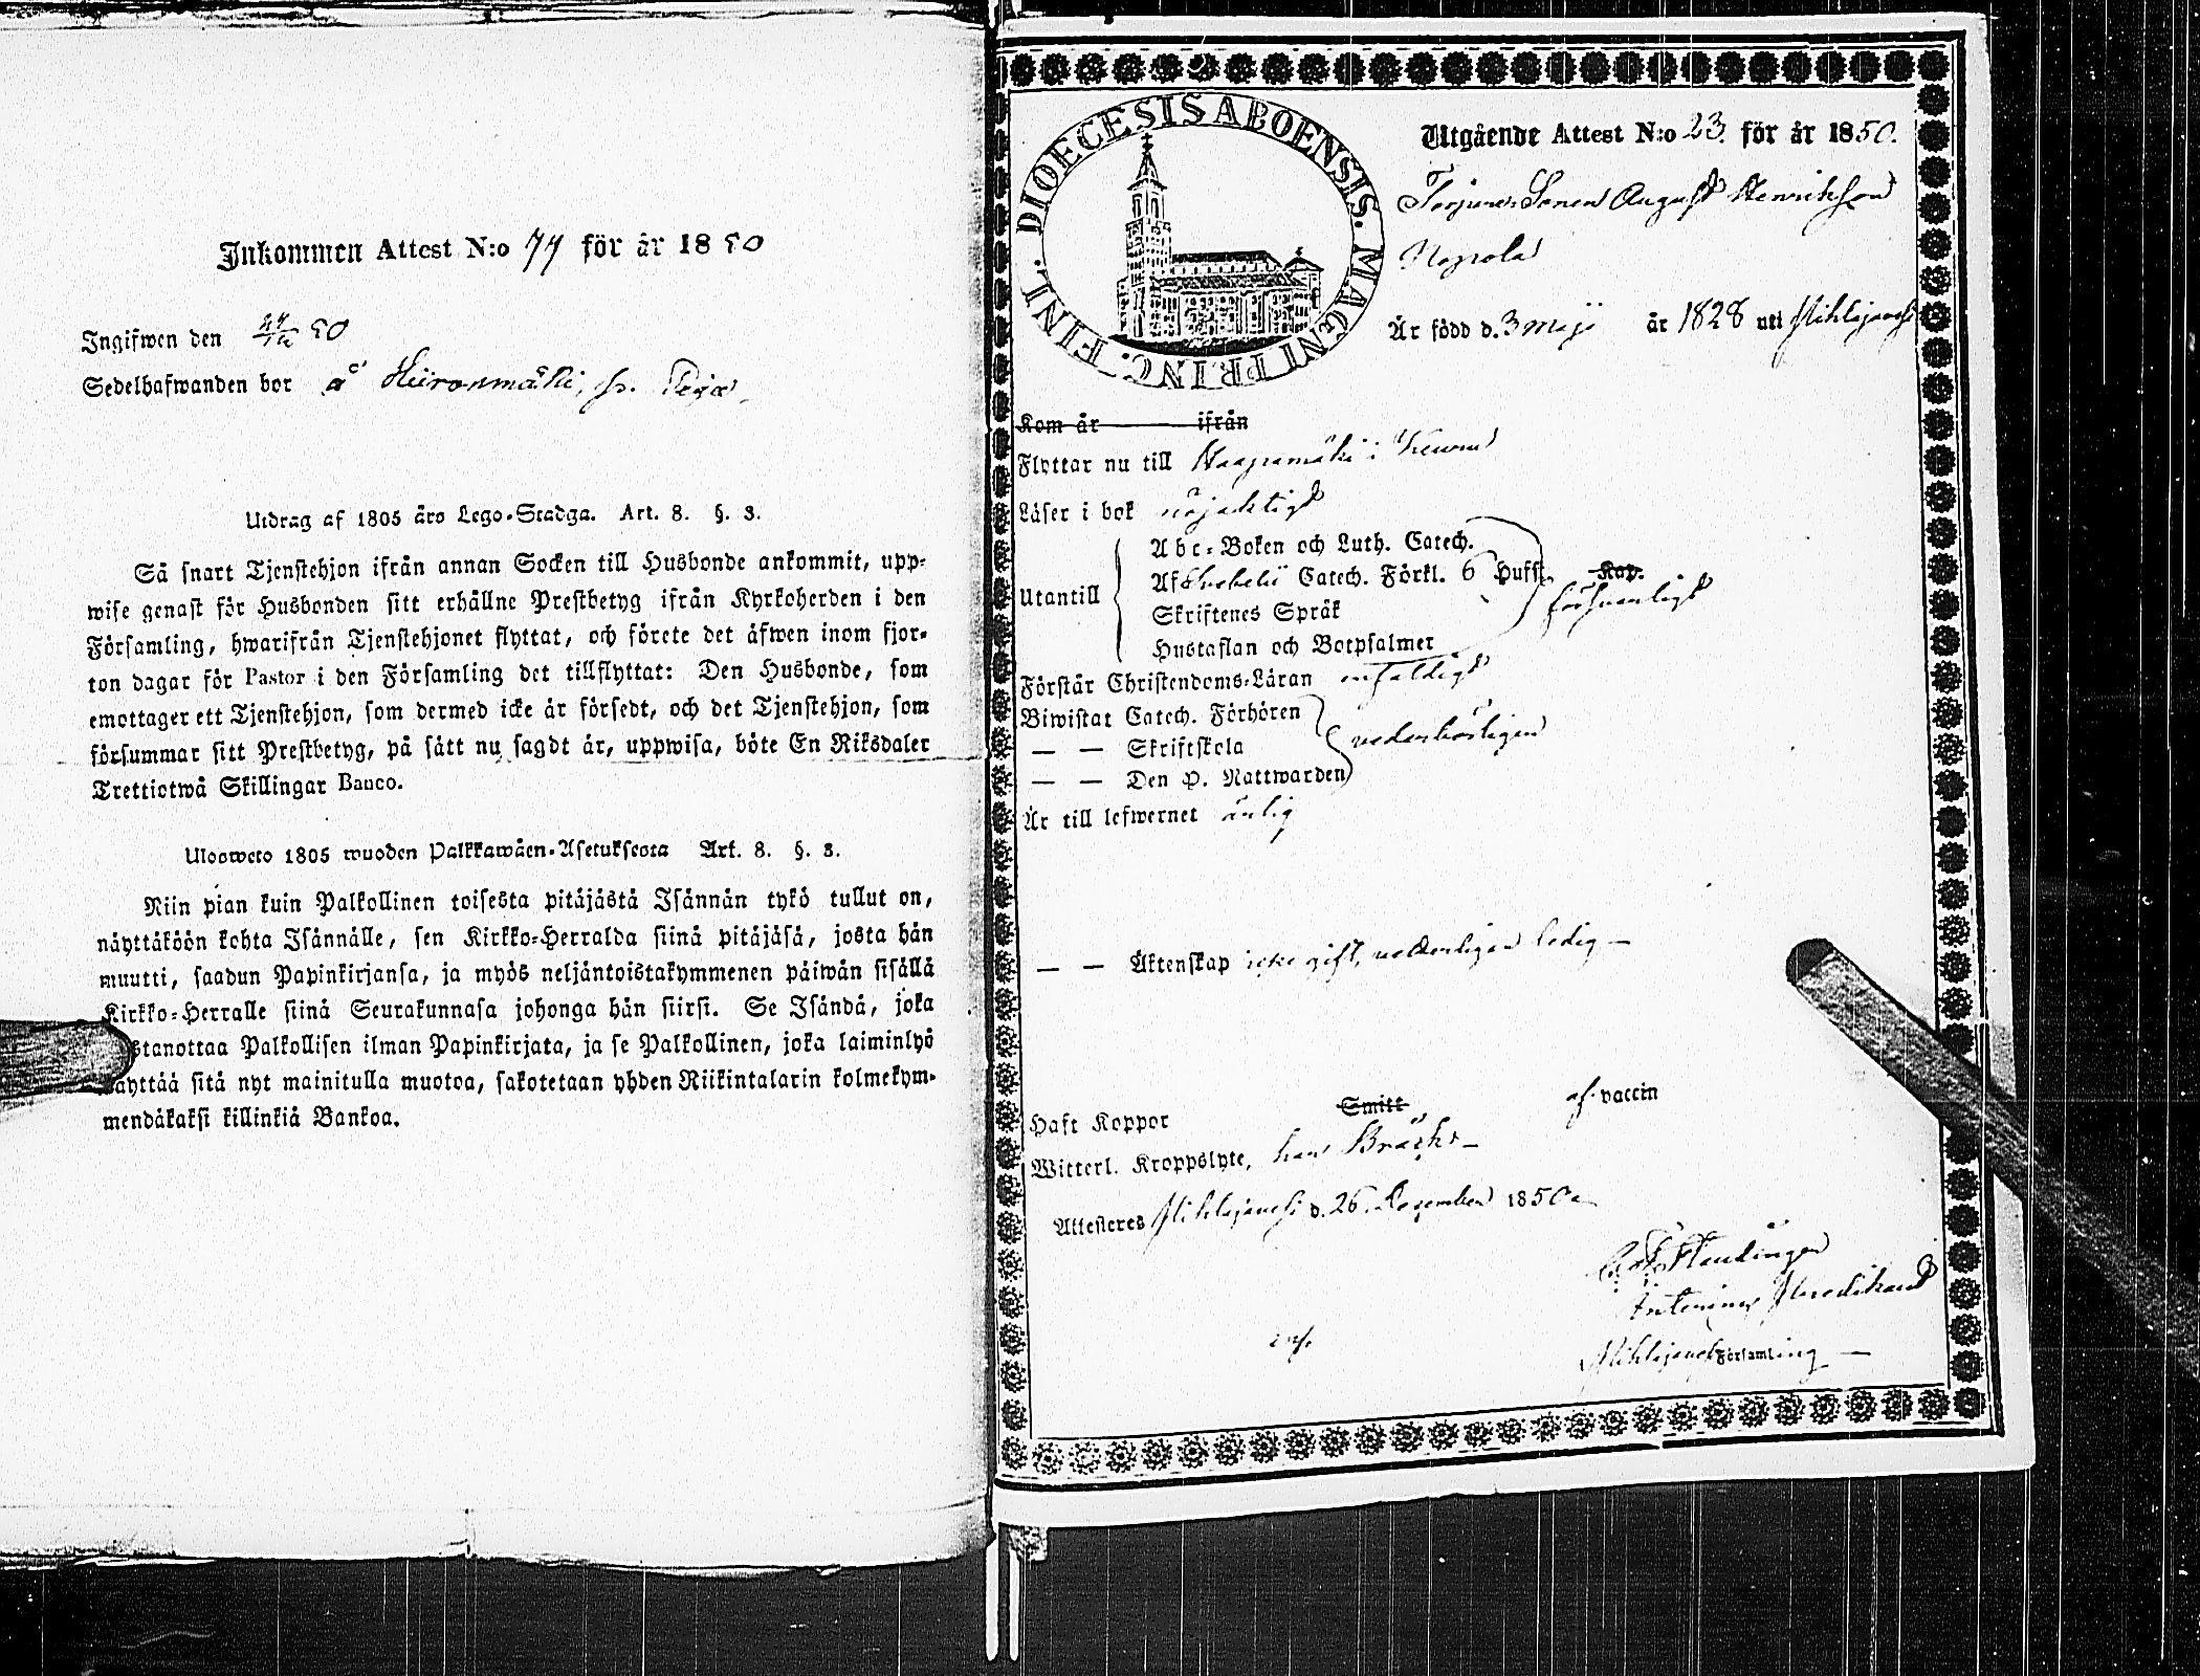 Inkommen Attest N:o 77 för år 1850
Ingifwen den 50
Sedelhafwanden bor å Hiironmäki,
Utdrag af 1805 års Lego-Stadga. Art. 8. §. 3.
Så snart Tjenstehjon ifrån annan Socken till Husbonde ankommit, upp-
wise genast för Husbonden sitt erhållne Prestbetyg ifrån Kyrkoherden i den
Församling, hwarifrån Tjenstehjonet flyttat, och förete det äfwen inom fjor-
ton dagar för Pastor i den Församling det tillflyttat: Den Husbonde, som
emottager ett Tjenstehjon, som dermed icke är försedt, och det Tjenstehjon, som
försummar sitt Prestbetyg, på sätt nu sagdt är, uppwisa, böte En Riksdaler
Trettiotwå Skillingar Banco.
Ulosweto 1805 wuoden Palkkawäen-Asetuksesta Art. 8. §. 3.
Niin pian kuin Palkollinen toisesta pitäjästä Isännän tykö tullut on,
näyttäköön kohta Isännälle, sen Kirkko-Herralda siinä pitäjäsä, josta hän
muutti, saadun Papinkirjansa, ja myös neljäntoistakymmenen päiwän sisällä
Kirkko-Herralle siinä Seurakunnasa johonga hän siirsi. Se Isändä, joka
stanottaa Palkollisen ilman Papinkirjata, ja se Palkollinen, joka laiminlyö
äyttää sitä nyt mainitulla muotoa, sakotetaan yhden Riikintalarin kolmekym-
mendäkaksi killinkiä Bankoa.
DIOECESIS ABOENSIS. MAGNI PRINC. FINL.
Utgående Attest N:o 23 för år 1850.
Sonen August Henriksson
Är född d. 3 Maji år 1828 uti Mihlajanshi
Kom år ifrån
Flyttar nu till Haapamäki i Keuru
Läser i bok nöjaktigt
Utantill
Abc-Boken och Luth. Catech.
Af Svebelii Catech. Förkl. 6 Hufst. Kap.
Skriftenes Språk
Hustaflan och Botpsalmer
försvarligt
Förstår Christendoms-Läran enfaldigt
Biwistat Catech. Förhören
— — Skriftskola
— — Den H. Nattwarden
vederbörligen
Är till lefwernet ärlig
— — Äktenskap icke gift, ledig —
Haft Koppor Smitt af vaccin
Witterl. Kroppslyte, har Bråck —
Attesteras d. 26 December 1850
Församling —